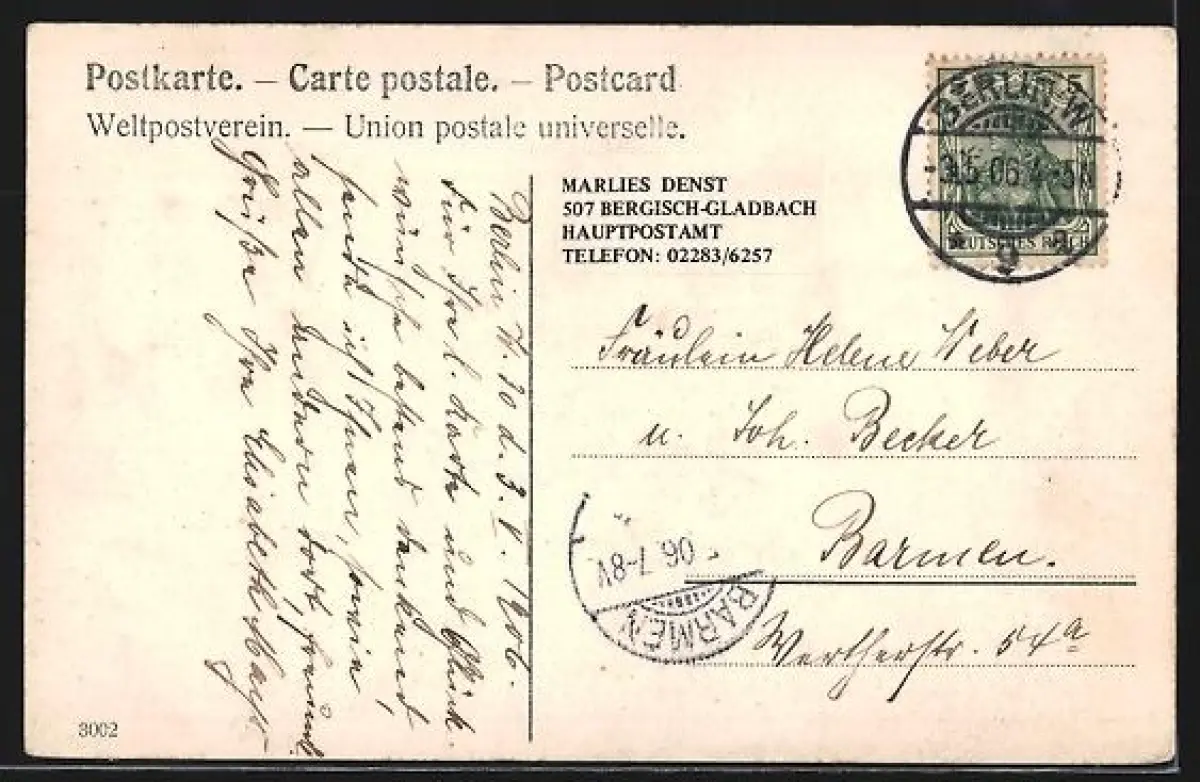 Postkarte. — Carte postale. — Postcard
Weltpostverein. — Union postale universelle.
BERLIN W
-3.5 06.4-5N
9 a
5
DEUTSCHES REICH
MARLIES DENST
507 BERGISCH-GLADBACH
HAUPTPOSTAMT
TELEFON: 02283/6257
Fräulein Helene Weber
u. Joh. Becker
Barmen.
Wertherstr. 54a
BARMEN
06.7-8V
Berlin W. 30 d. 3. V. 1906.
Für Ihre l. Karte und Glück-
wünsche bestens dankend,
sende ich Ihnen, sowie
allen Anderen dort, freundl.
Grüße Ihre Elisabeth
3002